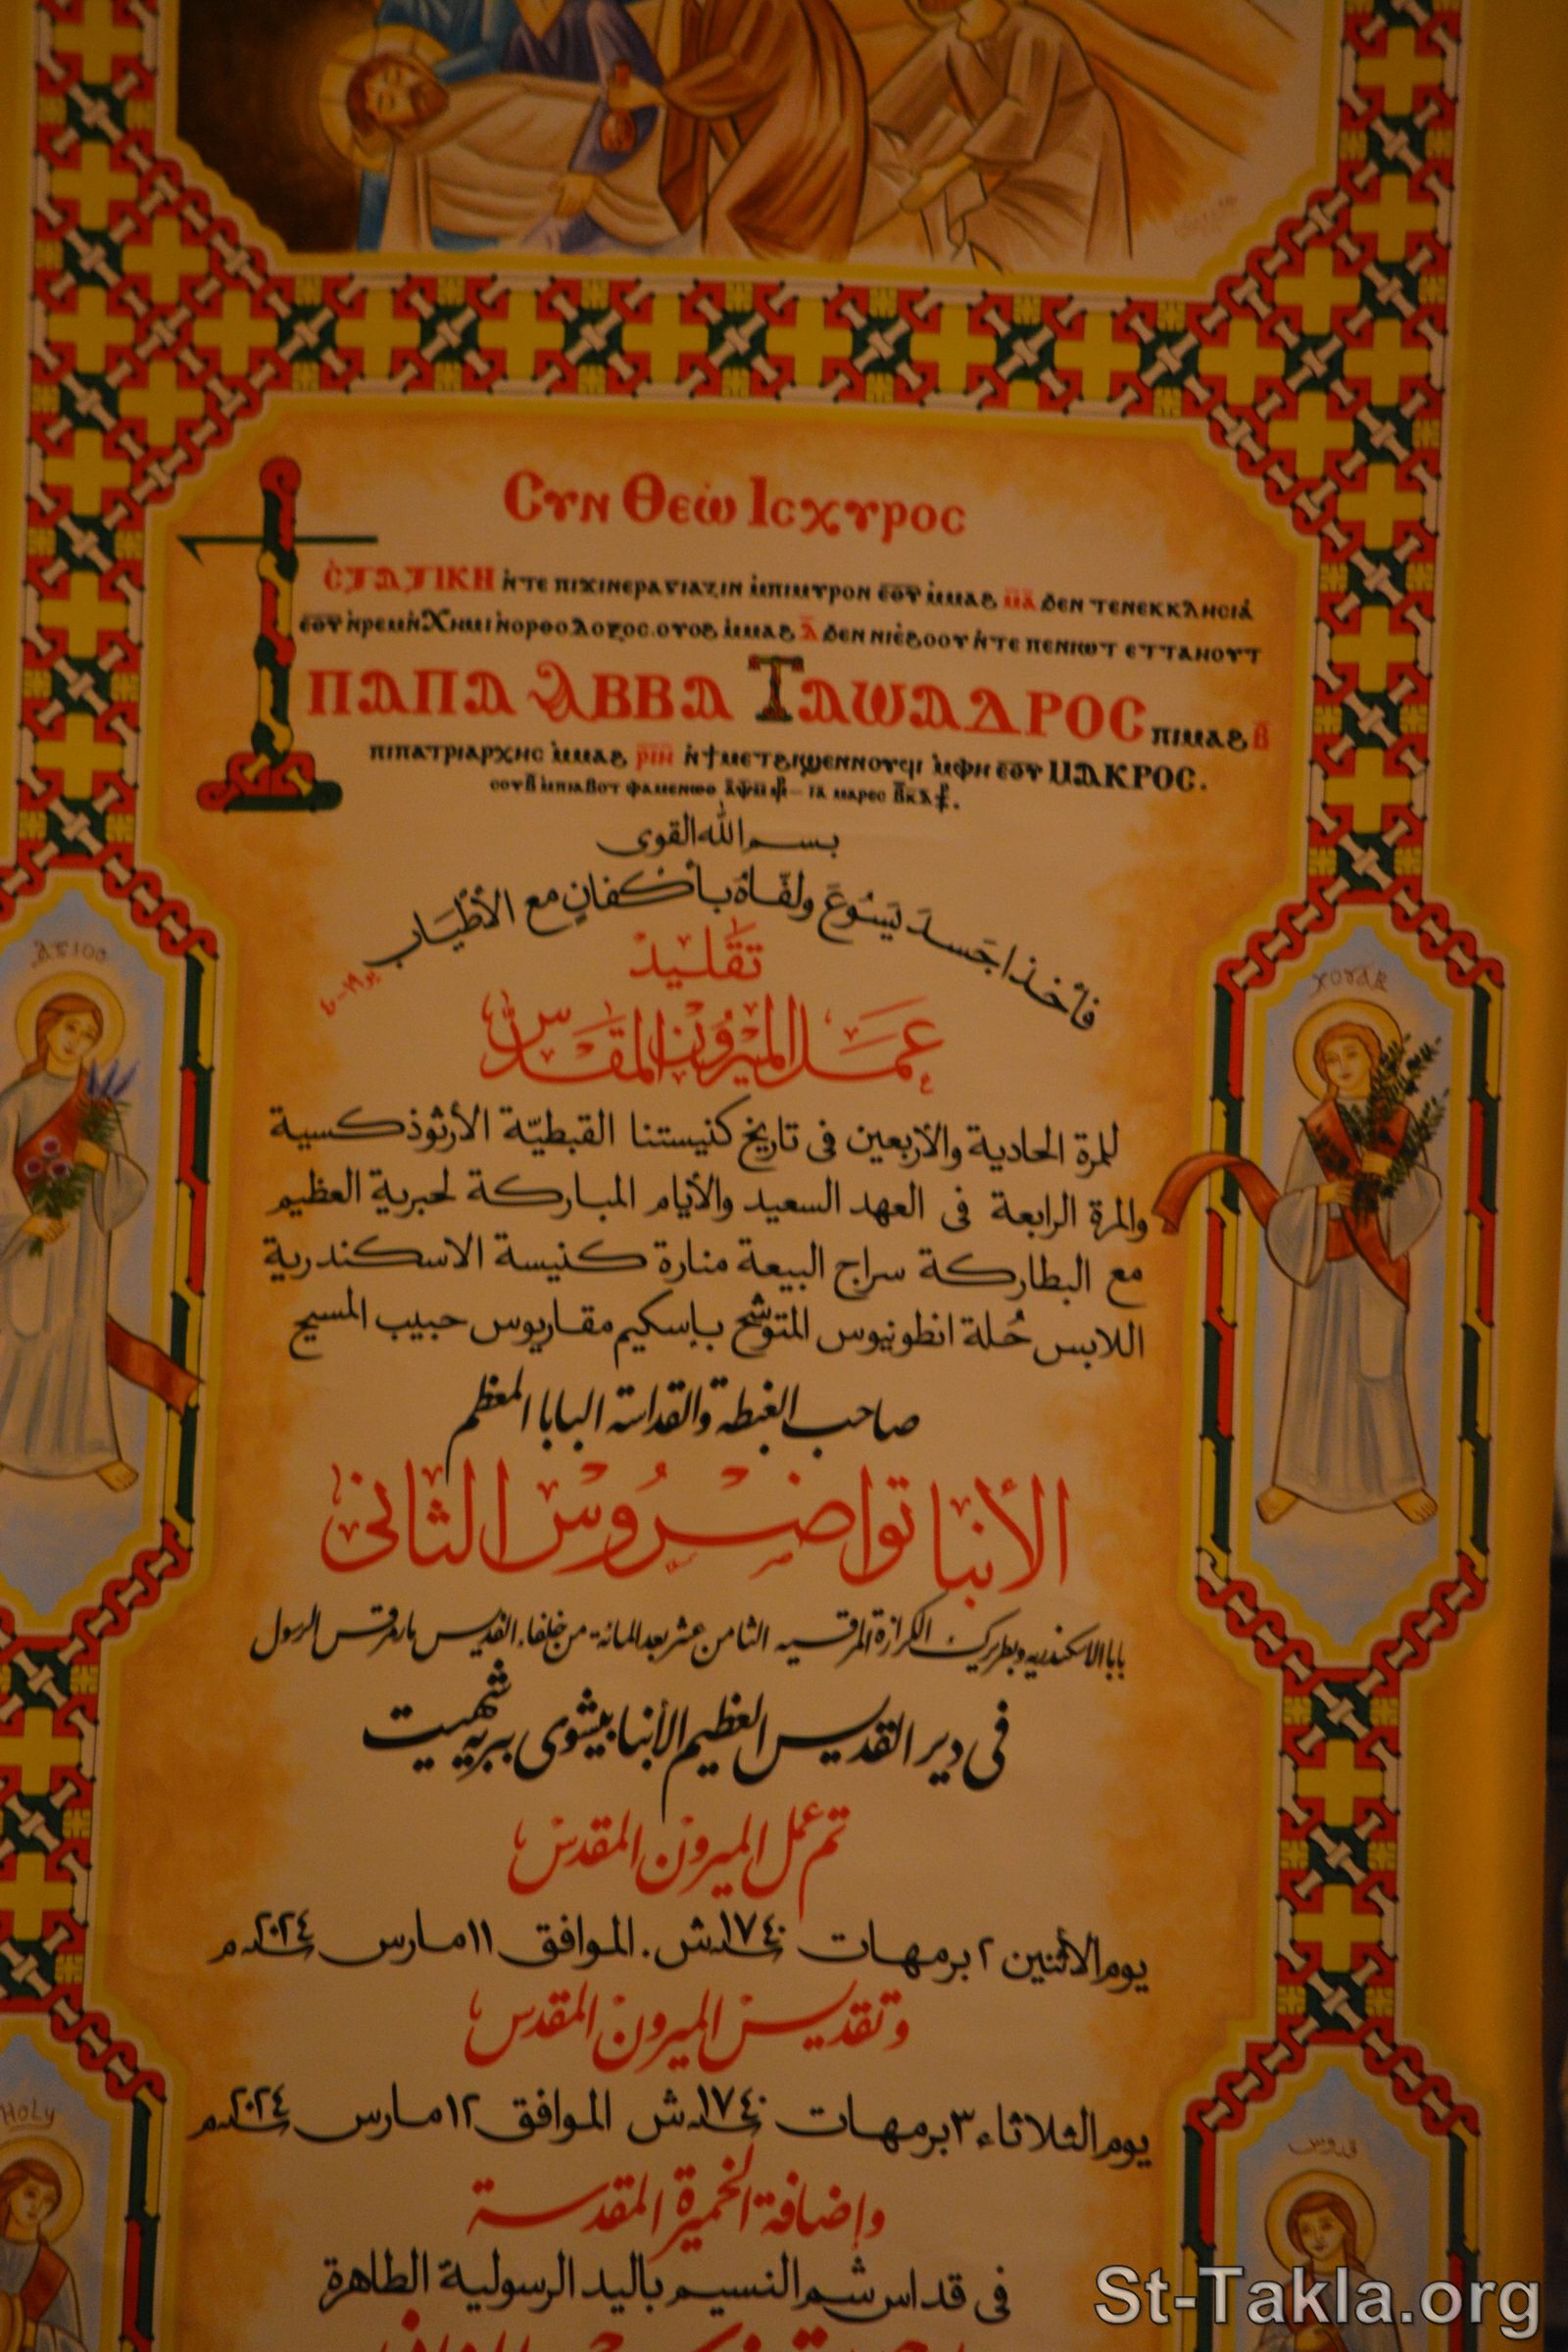 Ⲥⲩⲛ Ⲑⲉⲱ̀ Ⲓⲥⲭⲩⲣⲟⲥ
ⲥ̀ⲧⲁⲧⲓⲕⲏ ⲛ̀ⲧⲉ ⲡⲓϫⲓⲛⲉⲣⲁⲅⲓⲁⲍⲓⲛ ⲙ̀ⲡⲓⲙⲩⲣⲟⲛ ⲉ̅ⲑ̅ⲩ̅ ⲙ̀ⲙⲁϩ ⲙ̅ⲁ̅ ϧⲉⲛ ⲧⲉⲛⲉⲕⲕⲗⲏⲥⲓⲁ̀
ⲉ̅ⲑ̅ⲩ̅ ⲛ̀ⲣⲉⲙⲛ̀Ⲭⲏⲙⲓ ⲛ̀ⲟⲣⲑⲟⲇⲟⲝⲟⲥ. ⲟⲩⲟϩ ⲙ̀ⲙⲁϩ ⲇ̅ ϧⲉⲛ ⲛⲓⲉ̀ϩⲟⲟⲩ ⲛ̀ⲧⲉ ⲡⲉⲛⲓⲱⲧ ⲉⲧⲧⲁⲓⲟⲩⲧ
ⲠⲀⲠⲀ ⲀⲂⲂⲀ ⲦⲀⲰⲀⲆⲢⲞⲤ ⲡⲓⲙⲁϩ ⲃ̅
ⲡⲓⲡⲁⲧⲣⲓⲁⲣⲭⲏⲥ ⲙ̀ⲙⲁϩ ⲣ̅ⲓ̅ⲏ̅ ⲛ̀ϯⲙⲉⲧϩⲓϣⲉⲛⲛⲟⲩϥⲓ ⲙ̀ⲫⲏ ⲉ̅ⲑ̅ⲩ̅ ⲘⲀⲔⲢⲞⲤ.
بسم الله القوى
فأخذا جَسدَ يَسُوعَ ولفّاهُ بأكفانٍ مع الأطْيَاب
يو ١٩-٤٠
تقليد
عمل الميرون المقدس
للمرة الحادية والأربعين فى تاريخ كنيستنا القبطيّة الأرثوذكسية
والمرة الرابعة فى العهد السعيد والأيام المباركة لحبرية العظيم
مع البطاركة سراج البيعة منارة كنيسة الاسكندرية
اللابس حُلة انطونيوس المتوشّح بإسكيم مقاريوس حبيب المسيح
صاحب الغبطة والقداسة البابا المعظم
الأنبا تواضروس الثانى
بابا الاسكندرية وبطريرك الكرازة المرقسيه الثامن عشر بعد المائة من خلفاء القديس مارمرقس الرسول
فى دير القديس العظيم الأنبا بيشوى ببرية شهيت
تم عمل الميرون المقدس
يوم الأثنين ٢ برمهات ١٧٤٠ش. الموافق ١١ مارس ٢٠٢٤م
وتقديس الميرون المقدس
يوم الثلاثاء ٣ برمهات ١٧٤٠ش الموافق ١٢ مارس ٢٠٢٤م
وإضافة الخميرة المقدسة
فى قداس شم النسيم باليد الرسولية الطاهرة
ⲁⲅⲓⲟⲥ
ⲭⲟⲩⲁⲃ
HOLY
قدوس
St-Takla.org